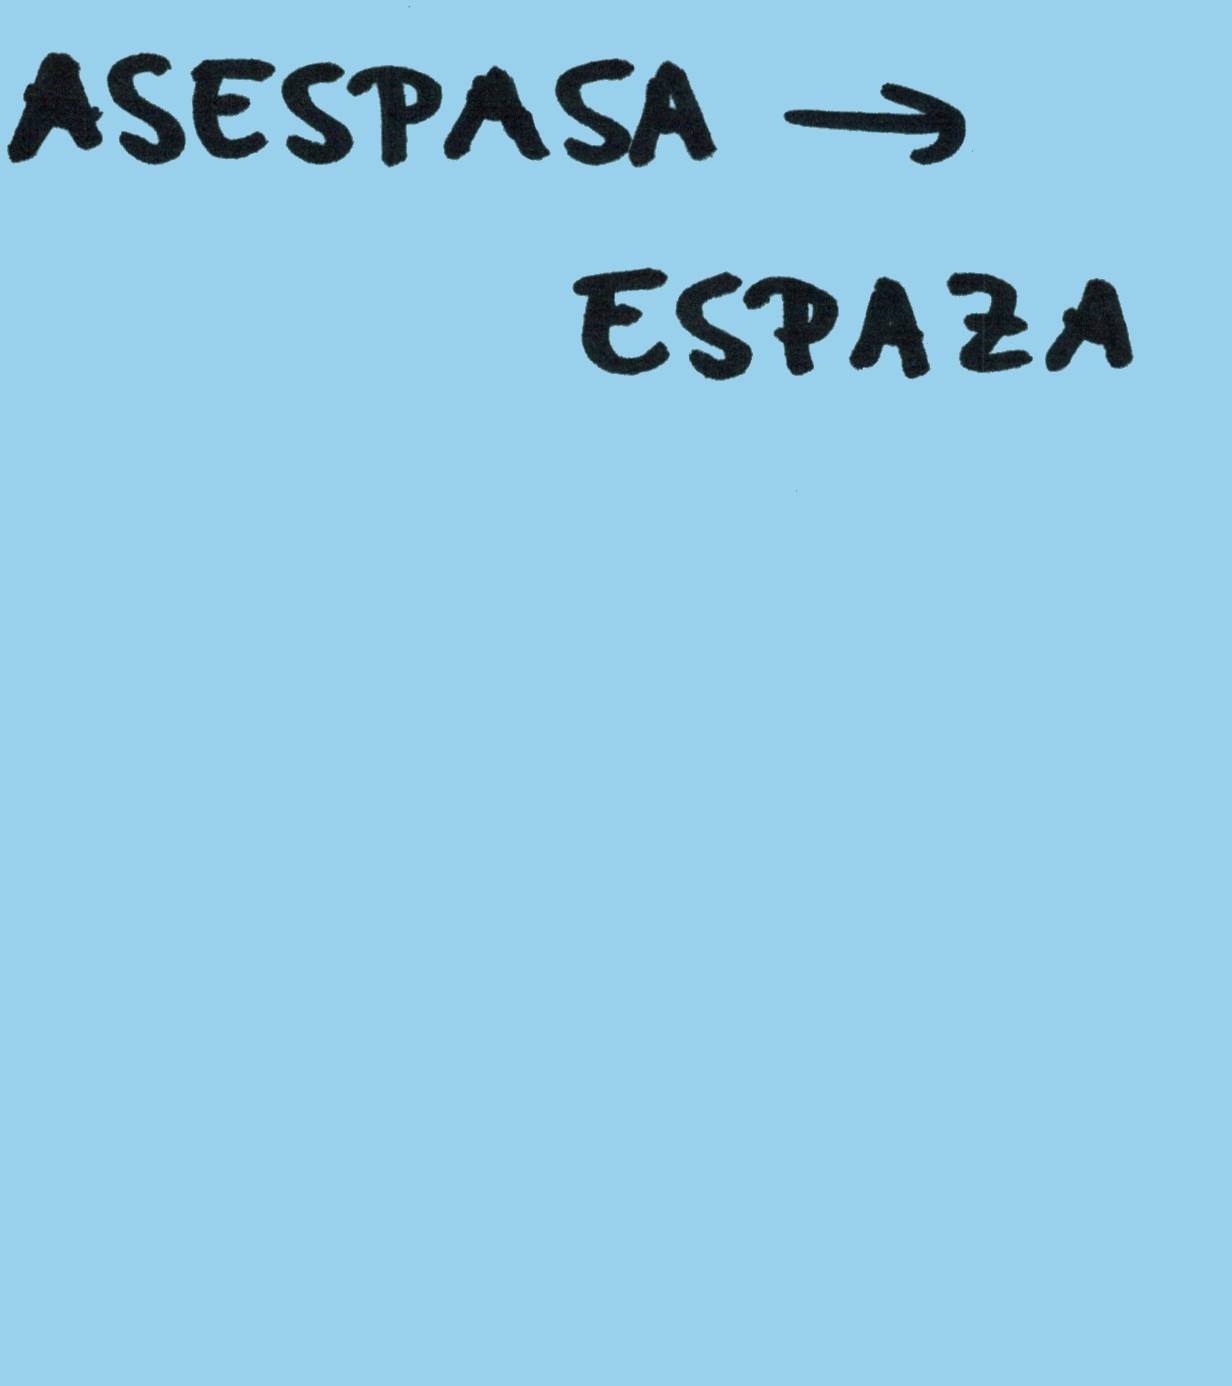 ASESPASA →
ESPAZA